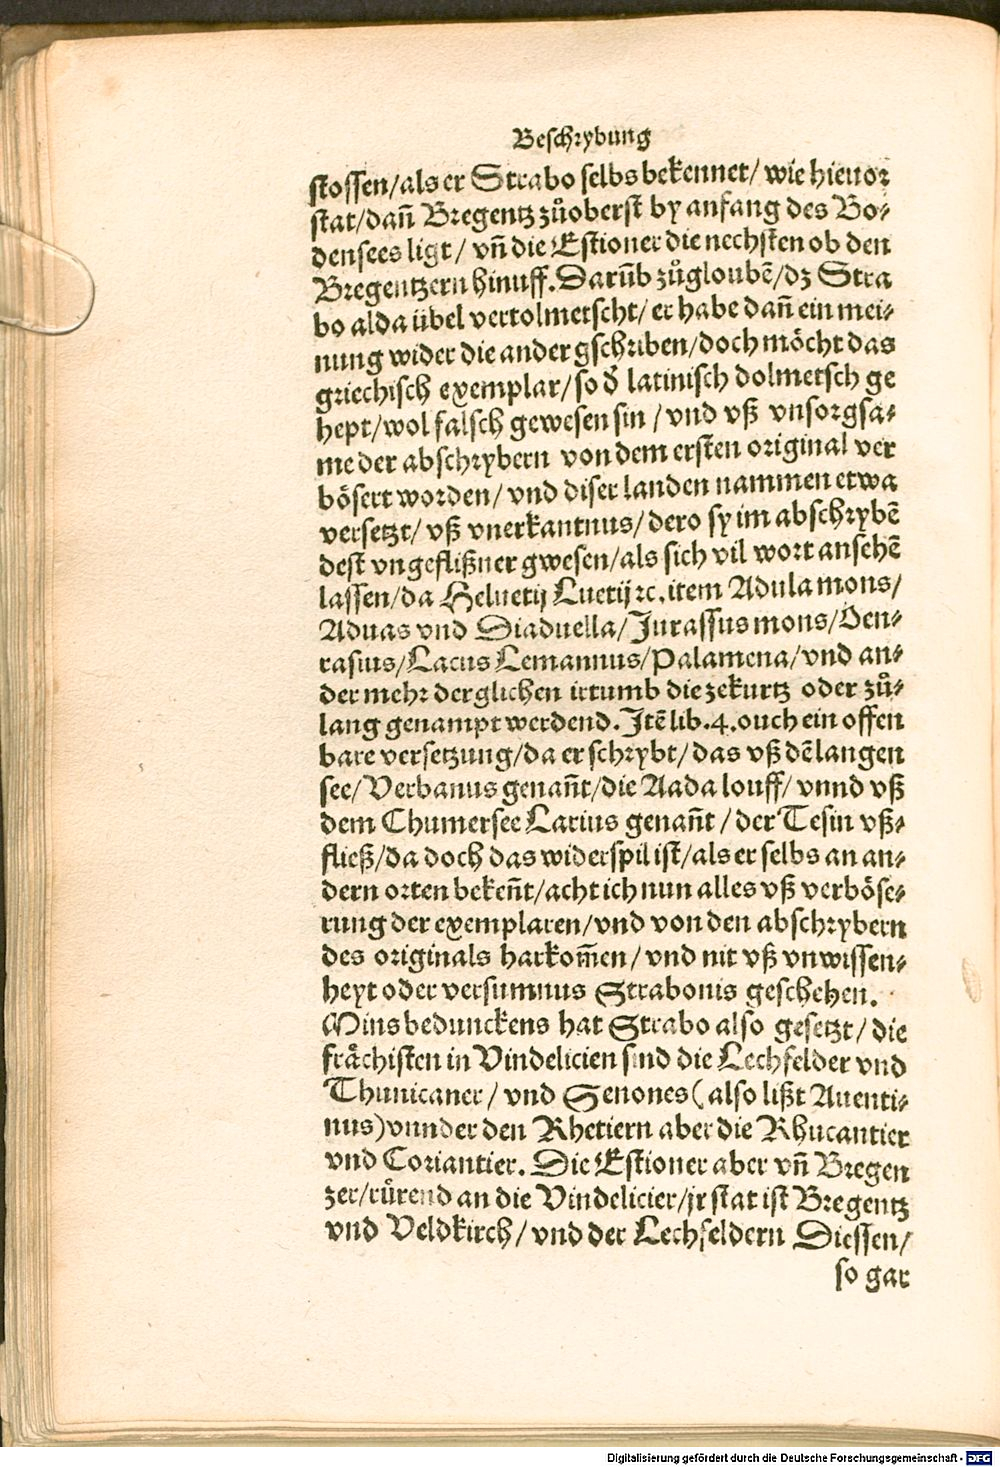 Beschrybung
stossen/als er Strabo selbs bekennet/ wie hieuor
stat/dañ Bregentz zůoberst by anfang des Bo⸗
densees ligt/ vñ die Estioner die nechsten ob den
Bregentzern hinuff. Darũb zůgloubẽ/dz Stra
bo alda übel vertolmetscht/ er habe dañ ein mei⸗
nung wider die ander gschriben/doch möcht das
griechisch exemplar/so d̕ latinisch dolmetsch ge
hept/wol falsch gewesen sin / vnd vß vnsorgsa⸗
me der abschrybern von dem ersten original ver
bösert worden/ vnd diser landen nammen etwa
versetzt/ vß vnerkantnus/ dero sy im abschrybẽ
dest vngeflißner gwesen/als sich vil wort ansehẽ
lassen/da Heluetij Luetij ꝛc. item Adula mons/
Aduas vnd Diaduella/Jurassus mons/Den⸗
rasius/Lacus Lemannus/Palamena/vnd an⸗
der mehr derglichen irtumb die zekurtz oder zů⸗
lang genampt werdend. Itẽ lib. 4. ouch ein offen
bare versetzung/da er schrybt/ das vß dẽ langen
see/Verbanus genañt/die Aada louff/ vnnd vß
dem Chumersee Larius genañt / der Tesin vß⸗
fließ/da doch das widerspil ist/als er selbs an an⸗
dern orten bekeñt/acht ich nun alles vß verböse⸗
rung der exemplaren/vnd von den abschrybern
des originals harkom̃en/ vnd nit vß vnwissen⸗
heyt oder versumnus Strabonis geschehen.
Mins bedunckens hat Strabo also gesetzt/ die
frächisten in Vindelicien sind die Lechfelder vnd
Thunicaner/ vnd Senones (also lißt Auenti⸗
nus) vnnder den Rhetiern aber die Rhucantier
vnd Coriantier. Die Estioner aber vñ Bregen
zer/rürend an die Vindelicier/jr stat ist Bregentz
vnd Veldkirch/ vnd der Lechfeldern Diessen/
so gar
Digitalisierung gefördert durch die Deutsche Forschungsgemeinschaft - DFG